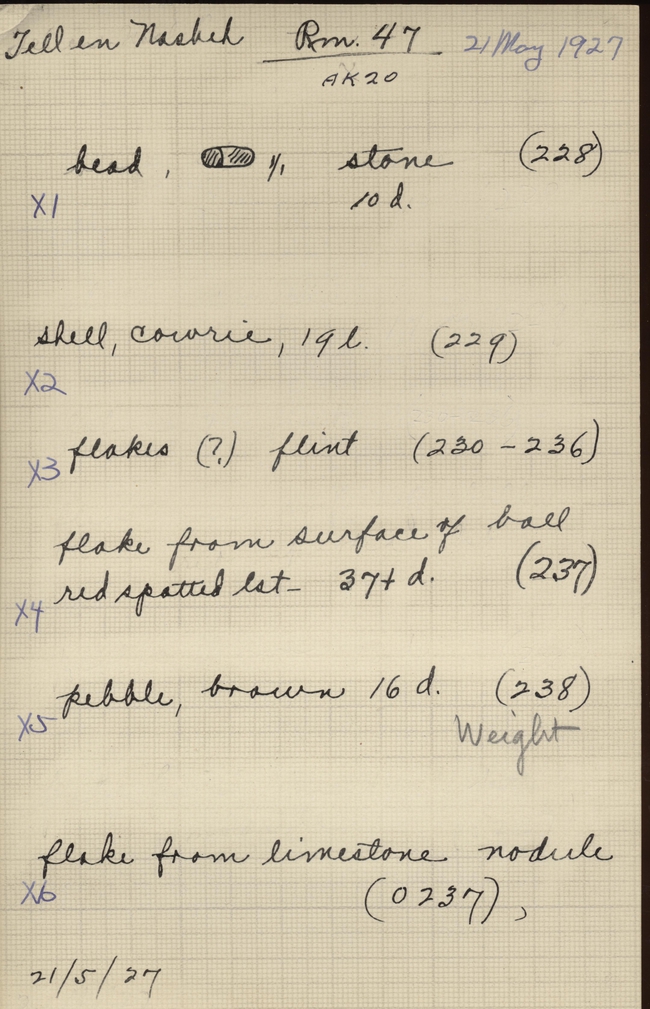 Tell en Nasbeh Rm. 47 21 May 1927
AK20
bead, 1/1 stone (228)
X1 10 d.
shell, cowrie, 19 l. (229)
X2
X3 flakes (?) flint (230 - 236)
flake from surface of ball
X4 red spotted lst- 37+ d. (237)
pebble, brown 16 d. (238)
X5 Weight
flake from limestone nodule
X6 (0237),
21/5/27